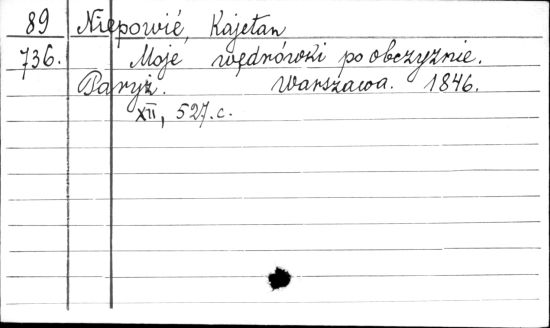 89 Niepowié, Kajetan
736. Moje wędrówki po obczyznie.
Paryż. Warszawa. 1846.
XII, 527.c.